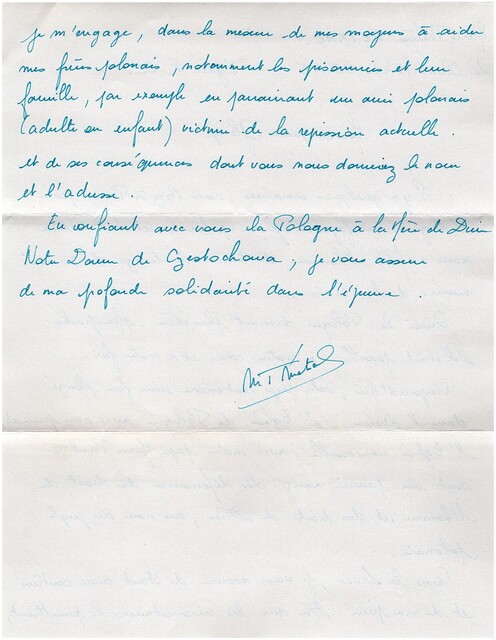 je m'engage, dans la mesure de mes moyens à aider
mes frères polonais, notamment les prisonniers et leur
famille, par exemple en parrainant un ami polonais
(adulte ou enfant) victime de la repression actuelle.
et de ses conséquences dont vous nous donneriez le nom
et l'adresse.
En confiant avec vous la Pologne à la Mère de Dieu
Notre Dame de Czestochowa, je vous assure
de ma profonde solidarité dans l'épreuve.